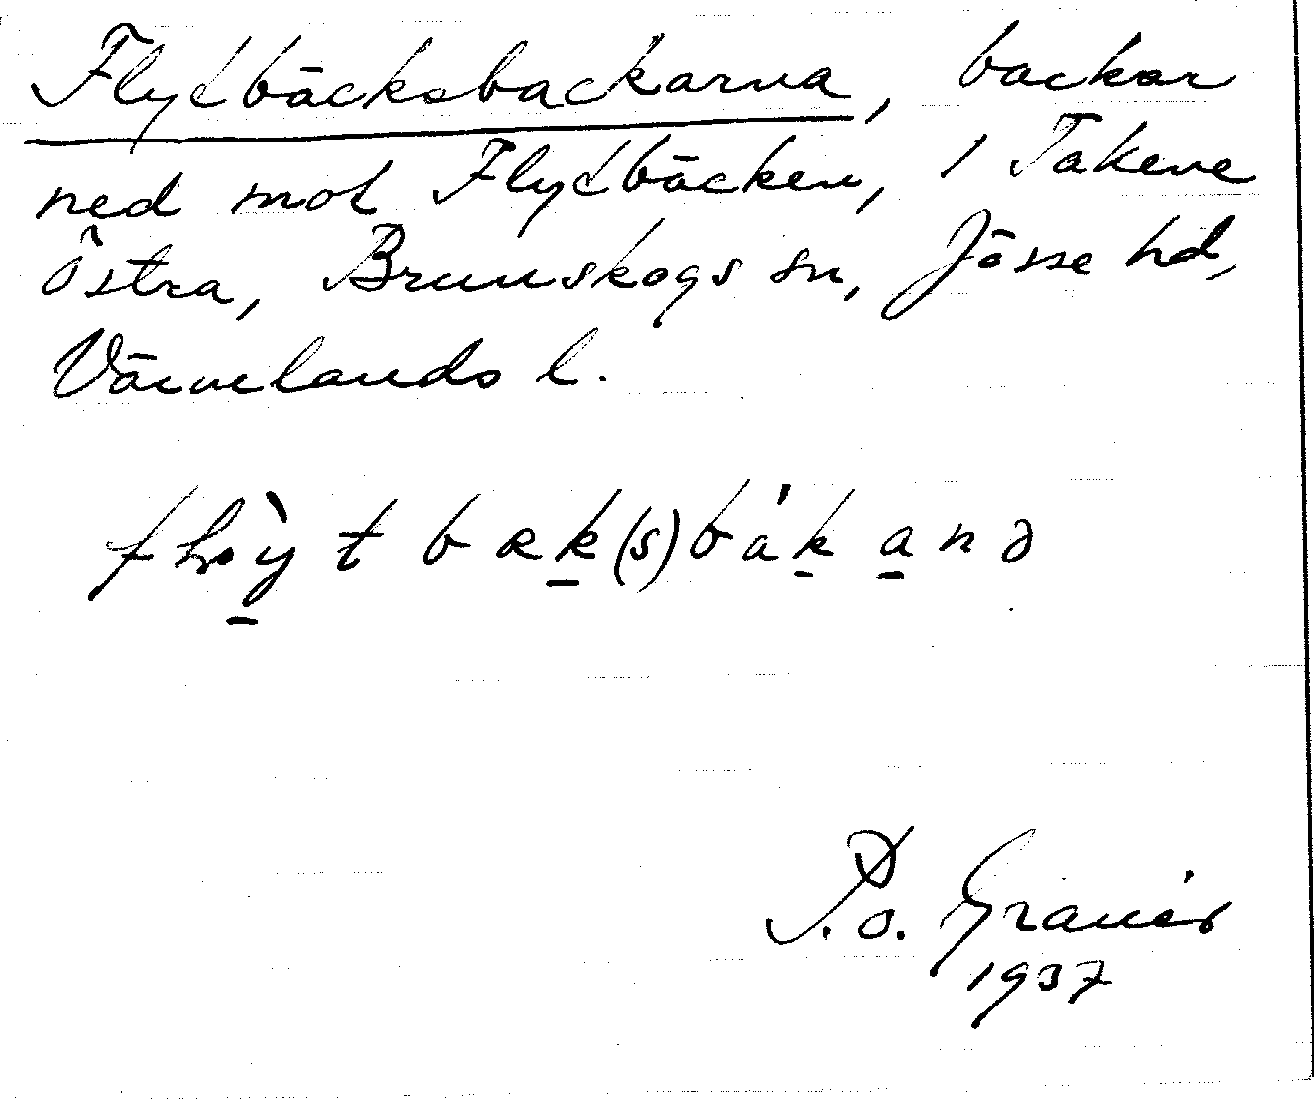 Flytbäcksbackarna, backar
ned mot Flytbäcken, i Takene
Östra, Brunskogs sn, Jösse hd,
Värmlands l.
P. O. Granér
1937